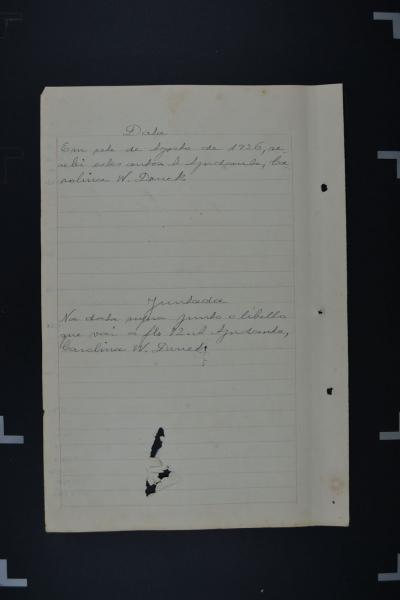 Data
Em sete de Agosto de 1926, re-
cebi estes autos. A Ajudante, Ca-
rolina W. Donck
Juntada
Na data supra junto o libello
que vai a fls 12. A Ajudante,
Carolina W. Donck